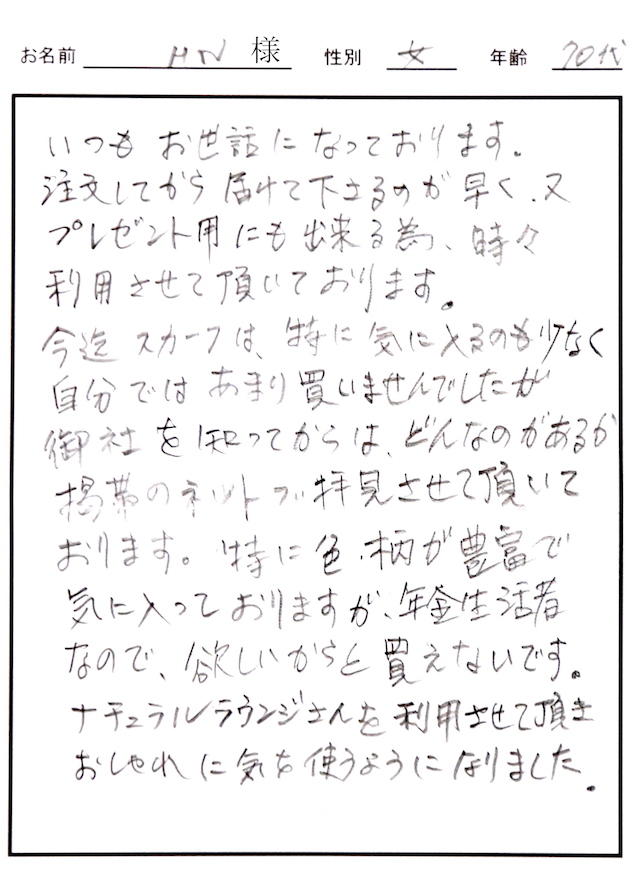 お名前 HN 様 性別 女 年齢 70代
いつもお世話になっております。
注文してから届けて下さるのが早く、又
プレゼント用にも出来る為、時々
利用させて頂いております。
今迄スカーフは、特に気に入るのも少なく
自分ではあまり買いませんでしたが
御社を知ってからは、どんなのがあるか
携帯のネットで拝見させて頂いて
おります。特に色・柄が豊富で
気に入っておりますが、年金生活者
なので、欲しいからと買えないです。
ナチュラルラウンジさんを利用させて頂き
おしゃれに気を使うようになりました。